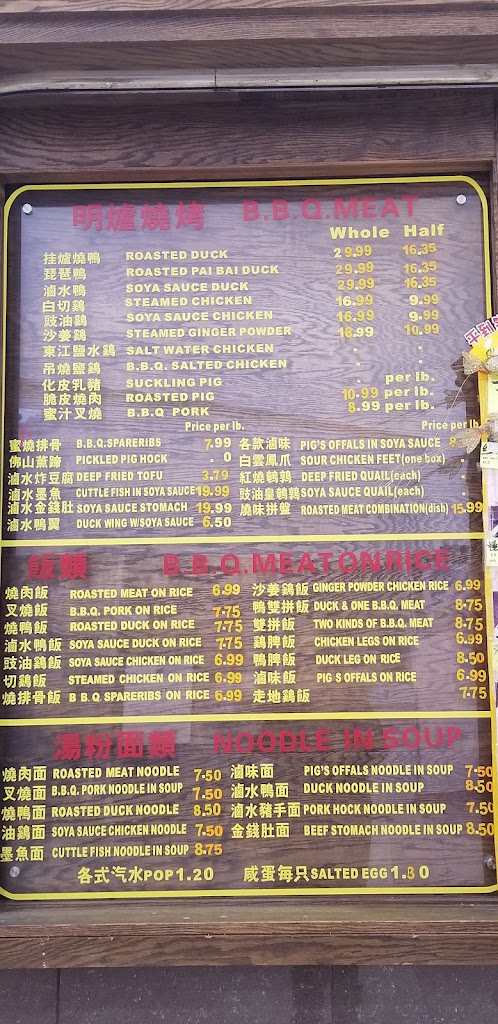 明爐燒烤 B.B.Q.MEAT
Whole Half
挂爐燒鴨 ROASTED DUCK 29.99 16.35
琵琶鴨 ROASTED PAI BAI DUCK 29.99 16.35
滷水鴨 SOYA SAUCE DUCK 29.99 16.35
白切鷄 STEAMED CHICKEN 16.99 9.99
豉油鷄 SOYA SAUCE CHICKEN 16.99 9.99
沙姜鷄 STEAMED GINGER POWDER 18.99 10.99
東江鹽水鷄 SALT WATER CHICKEN . .
吊燒鹽鷄 B.B.Q. SALTED CHICKEN . .
化皮乳豬 SUCKLING PIG . per lb.
脆皮燒肉 ROASTED PIG 10.99 per lb.
蜜汁叉燒 B.B.Q PORK 8.99 per lb.
Price per lb. Price per lb.
蜜燒排骨 B.B.Q.SPARERIBS 7.99 各款滷味 PIG'S OFFALS IN SOYA SAUCE
佛山熏蹄 PICKLED PIG HOCK . 0 白雲鳳爪 SOUR CHICKEN FEET(one box) .
滷水炸豆腐 DEEP FRIED TOFU 3.79 紅燒鵪鶉 DEEP FRIED QUAIL(each)
滷水墨魚 CUTTLE FISH IN SOYA SAUCE 19.99 豉油皇鵪鶉 SOYA SAUCE QUAIL(each) .
滷水金錢肚 SOYA SAUCE STOMACH 19.99 燒味拼盤 ROASTED MEAT COMBINATION(dish) 15.99
滷水鴨翼 DUCK WING W/SOYA SAUCE 6.50
飯類 B.B.Q. MEAT ON RICE
燒肉飯 ROASTED MEAT ON RICE 6.99 沙姜鷄飯 GINGER POWDER CHICKEN RICE 6.99
叉燒飯 B.B.Q. PORK ON RICE 7.75 鴨雙拼飯 DUCK & ONE B.B.Q. MEAT 8.75
燒鴨飯 ROASTED DUCK ON RICE 7.75 雙拼飯 TWO KINDS OF B.B.Q. MEAT 8.75
滷水鴨飯 SOYA SAUCE DUCK ON RICE 7.75 鷄脾飯 CHICKEN LEGS ON RICE 6.99
豉油鷄飯 SOYA SAUCE CHICKEN ON RICE 6.99 鴨脾飯 DUCK LEG ON RICE 8.50
切鷄飯 STEAMED CHICKEN ON RICE 6.99 滷味飯 PIG S OFFALS ON RICE 6.99
燒排骨飯 B B Q. SPARERIBS ON RICE 6.99 走地鷄飯 7.75
湯粉面類 NOODLE IN SOUP
燒肉面 ROASTED MEAT NOODLE 7.50 滷味面 PIG'S OFFALS NOODLE IN SOUP 7.50
叉燒面 B.B.Q. PORK NOODLE IN SOUP 7.50 滷水鴨面 DUCK NOODLE IN SOUP 8.50
燒鴨面 ROASTED DUCK NOODLE 8.50 滷水豬手面 PORK HOCK NOODLE IN SOUP 7.50
油鷄面 SOYA SAUCE CHICKEN NOODLE 7.50 金錢肚面 BEEF STOMACH NOODLE IN SOUP 8.50
墨魚面 CUTTLE FISH NOODLE IN SOUP 8.75
各式汽水 POP 1.20 咸蛋每只 SALTED EGG 1.30